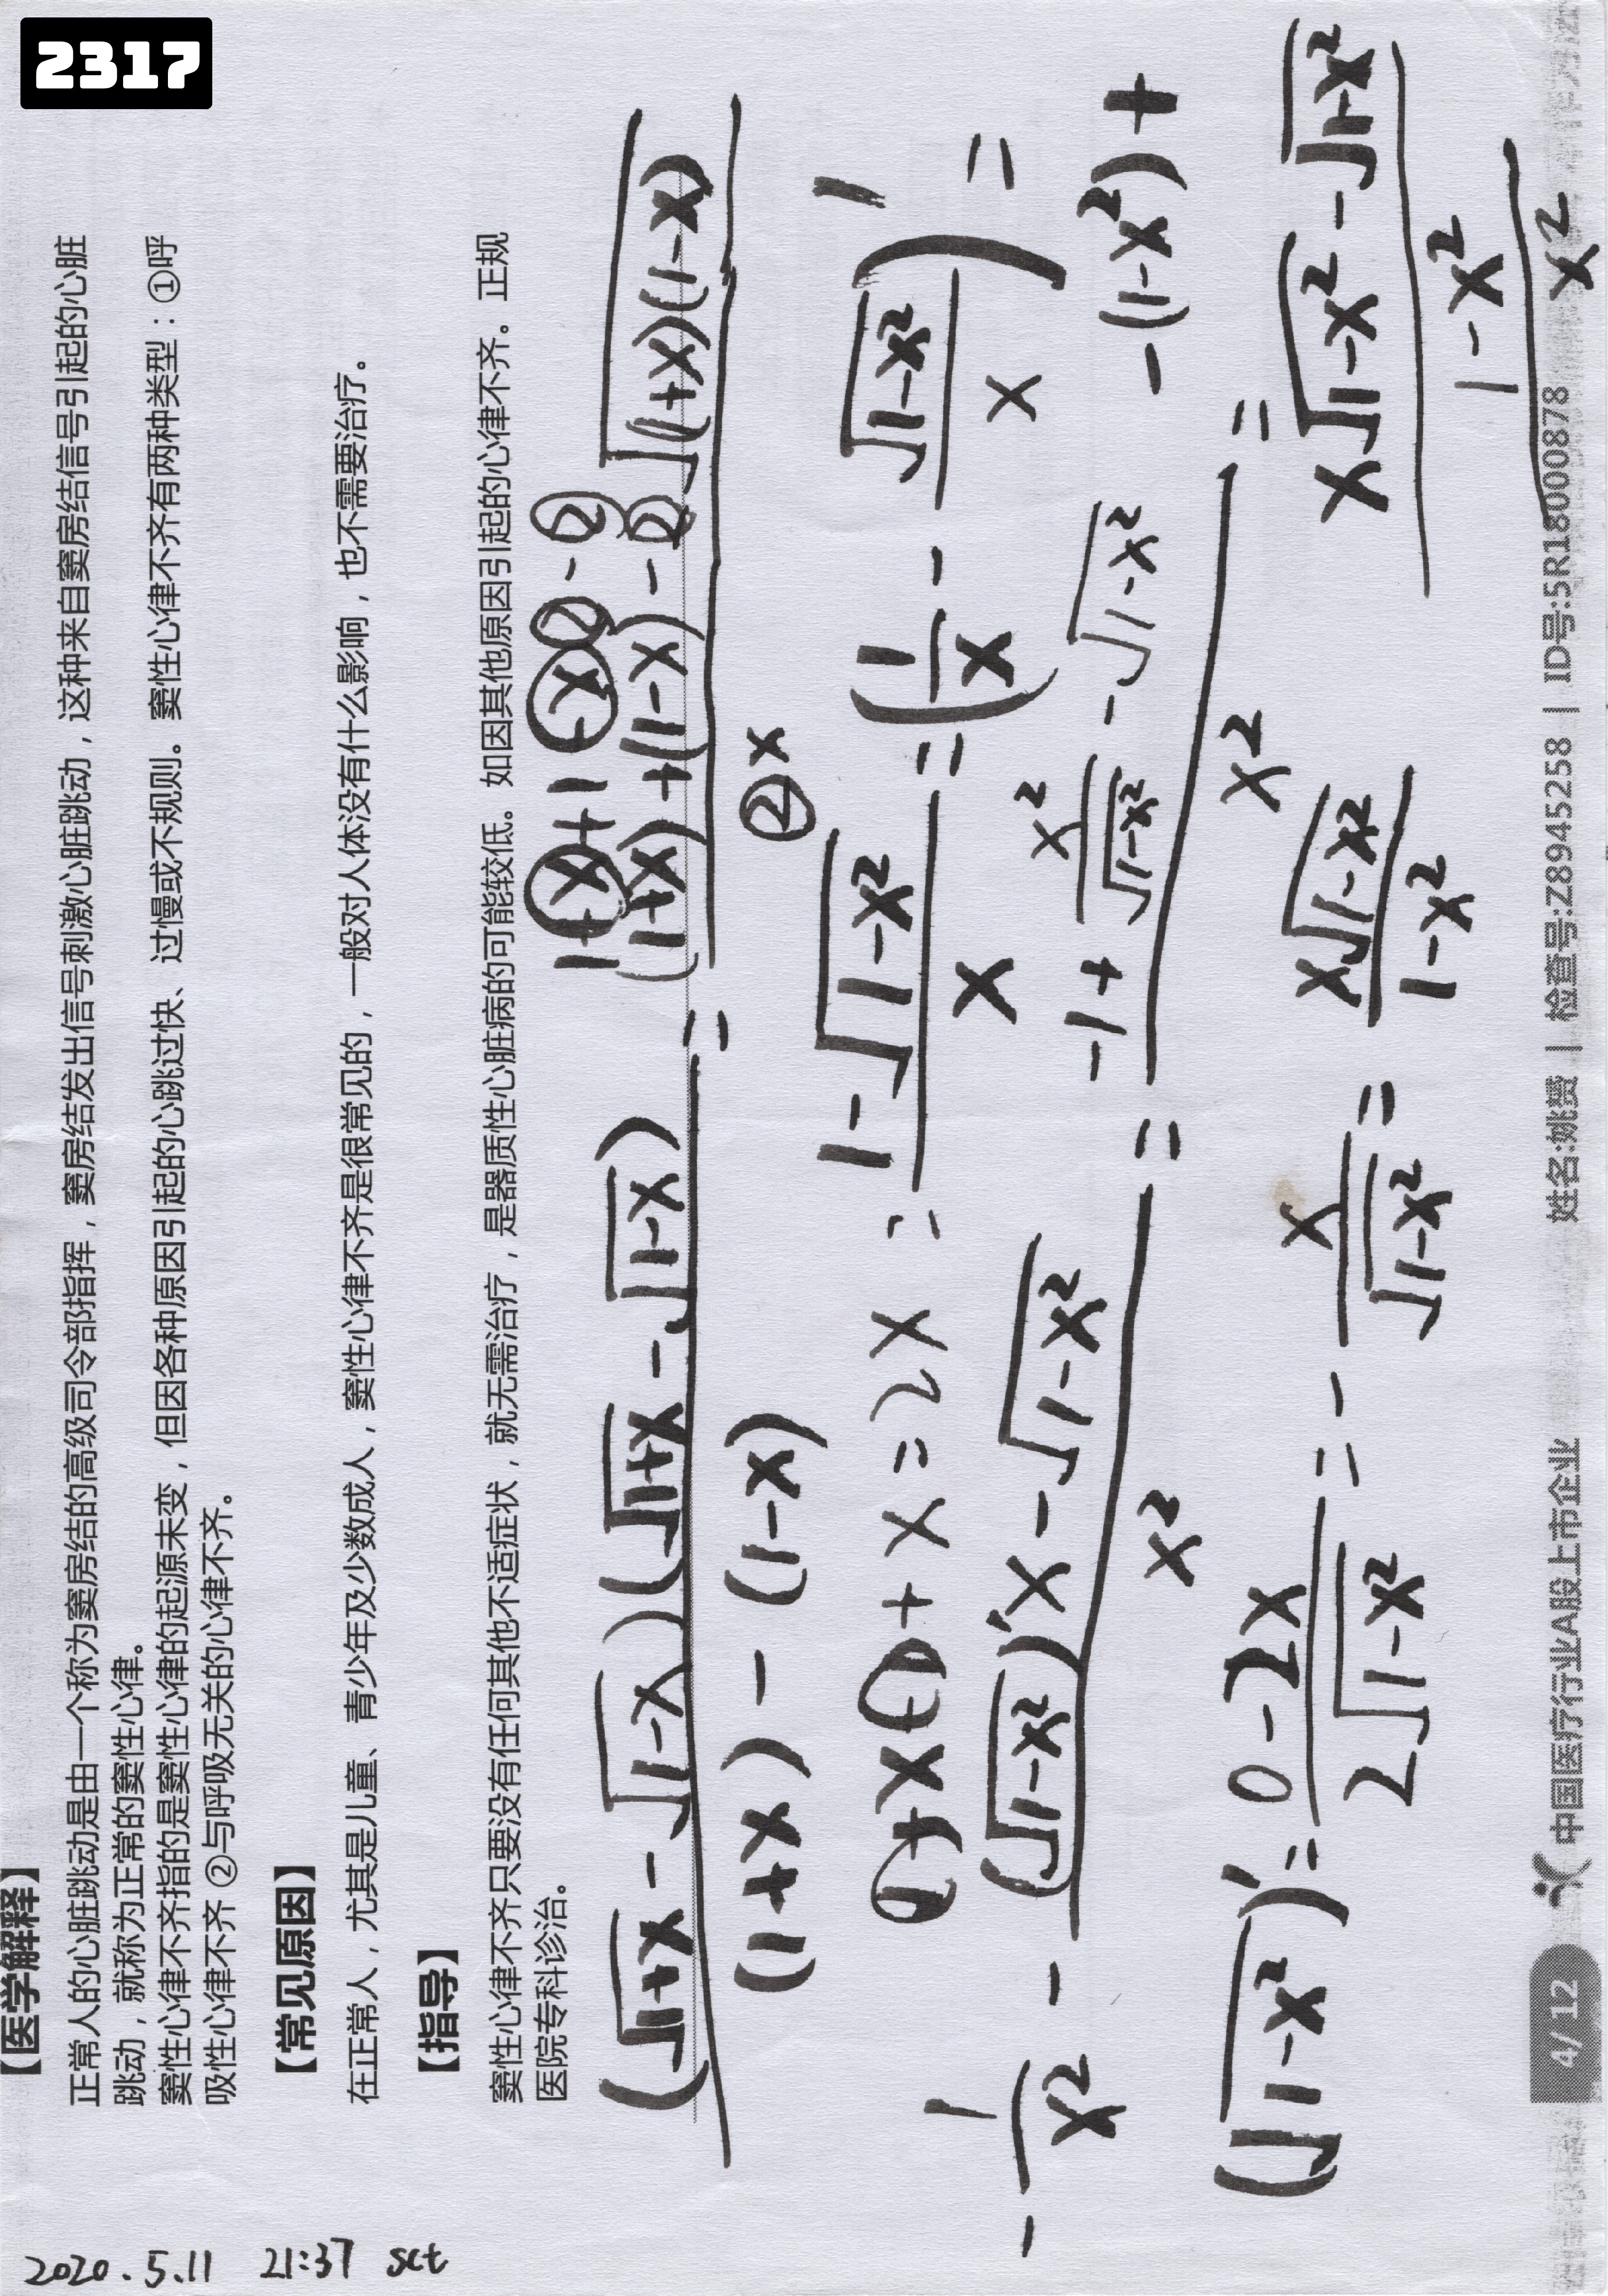 2317
【医学解释】
正常人的心脏跳动是由一个称为窦房结的高级司令部指挥，窦房结发出信号刺激心脏跳动，这种来自窦房结信号引起的心脏
跳动，就称为正常的窦性心律。
窦性心律不齐指的是窦性心律的起源未变，但因各种原因引起的心跳过快、过慢或不规则。窦性心律不齐有两种类型：①呼
吸性心律不齐 ②与呼吸无关的心律不齐。
【常见原因】
在正常人，尤其是儿童、青少年及少数成人，窦性心律不齐是很常见的，一般对人体没有什么影响，也不需要治疗。
【指导】
窦性心律不齐只要没有任何其他不适症状，就无需治疗，是器质性心脏病的可能较低。如因其他原因引起的心律不齐。正规
医院专科诊治。
1+x+1-x 2-2
(√1+x - √1-x)(√1+x - √1-x) = (1+x)+(1-x)-2√(1+x)(1-x)
(1+x) - (1-x)
2x
1+x(-1)+x=2x
= 1-√1-x² / x = (1/x - √1-x² / x)' =
-1/x² - (√1-x²)'x - √1-x² / x² = -1+ x²/√1-x² - √1-x² / x² = -(1-x²)+ x√1-x² - √1-x² / 1-x² / x²
(√1-x²)' = 0-2x / 2√1-x² = - x/√1-x² = x√1-x² / 1-x²
4/ 12
中国医疗行业A股上市企业
姓名:姚赟 | 检查号:Z8945258 | ID号:5R18000878
2020.5.11 21:37 sct